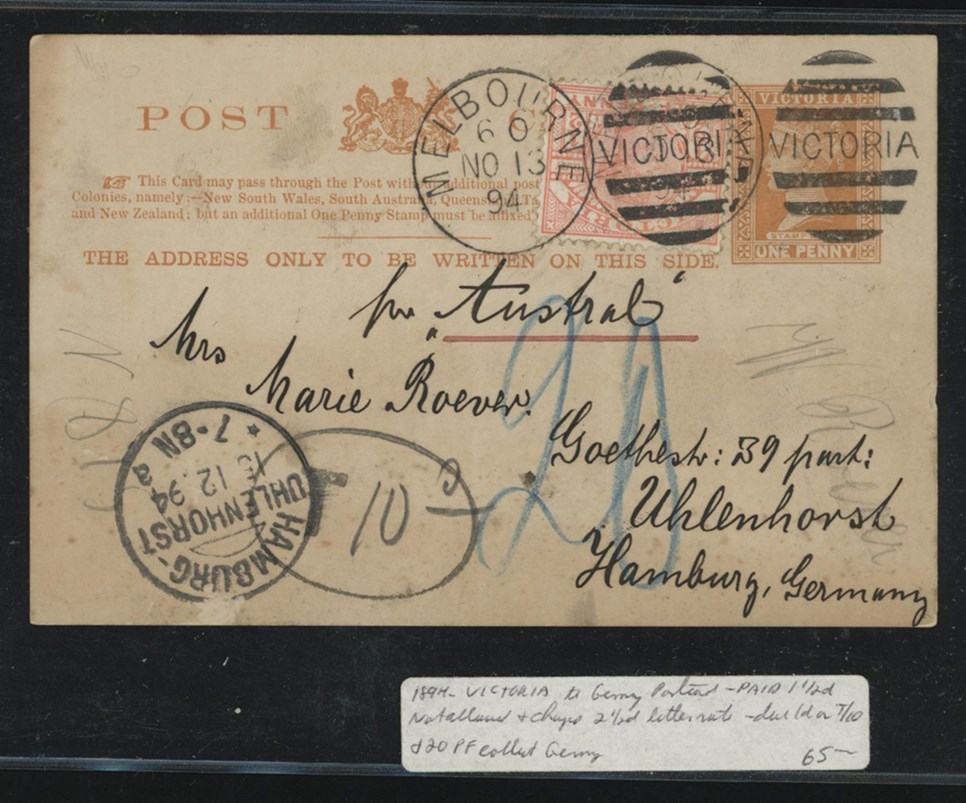 POST C
☞ This Card may pass through the Post without additional post
Colonies, namely:—New South Wales, South Australia, Queensland, Ta
and New Zealand; but an additional One Penny Stamp must be affixed
THE ADDRESS ONLY TO BE WRITTEN ON THIS SIDE.
MELBOURNE
6 O
NO 13
94
VICTORIA
VICTORIA
VICTORIA
STAMP
ONE PENNY
per "Austral"
Mrs
Marie Roever.
Goethestr: 39 part:
Uhlenhorst
Hamburg, Germany
20
T
10
HAMBURG-
UHLENHORST
15 12.94
7-8N
a
1894- VICTORIA to Germy Postcard - PAID 1 1/2d
Not allowed & charged 2 1/2d letter rate - due 1d or T/10
& 20 PF collect Germy
65—